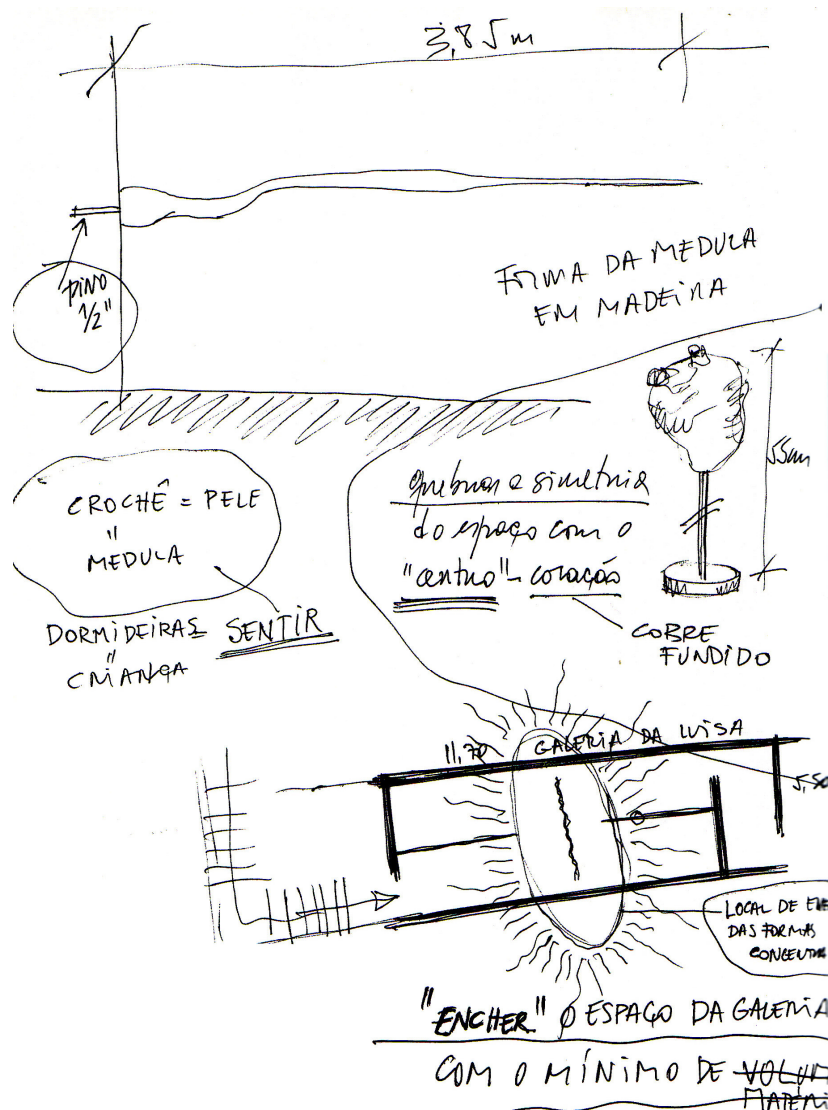 3,85m
PINO
1/2"
FORMA DA MEDULA
EM MADEIRA
55cm
CROCHÊ = PELE
"
MEDULA
DORMIDEIRAS = SENTIR
"
CRIANÇA
quebrar a simetria
do espaço com o
"centro" - coração
COBRE
FUNDIDO
11,70 GALERIA DA LUISA
5,50
LOCAL DE
DAS FORMAS
"ENCHER" O ESPAÇO DA GALERIA
COM O MÍNIMO DE